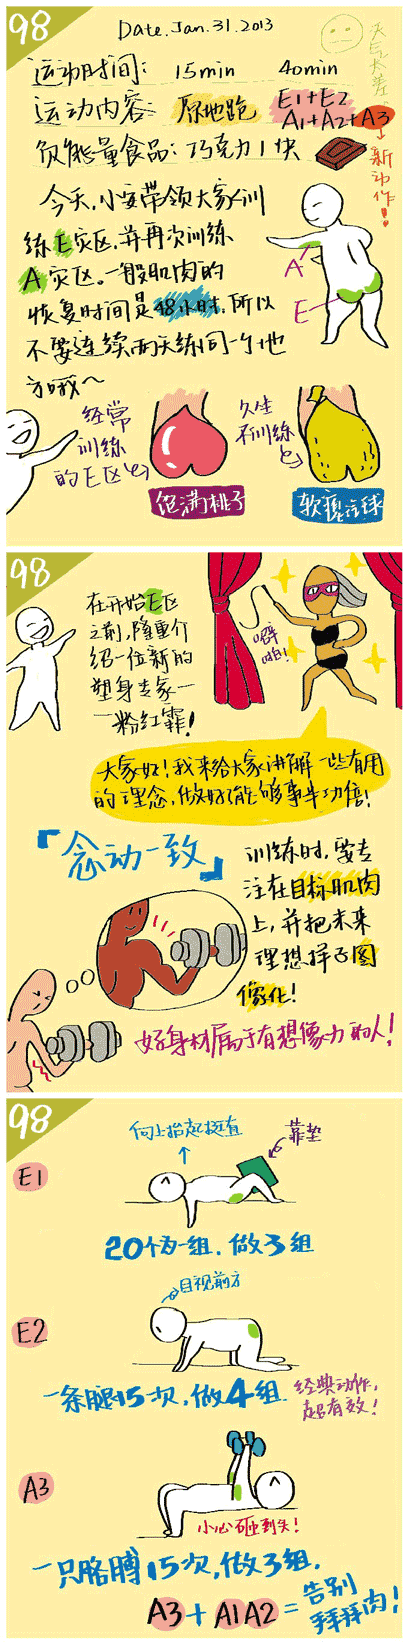 98
Date. Jan. 31. 2013
天气太差
运动时间： 15min 40min
运动内容 原地跑 E1+E2
A1+A2+A3
负能量食品：巧克力1块
新动作！
今天，小安带领大家训
练E灾区，并再次训练
A灾区。一般肌肉的
恢复时间是48小时，所以
不要连续两天练同一个地
方哦~
A
E
经常
训练
的E区
饱满桃子
久坐
不训练
98
在开始E区
之前，隆重介
绍一位新的
塑身专家—
—粉红霏！
噼啪！
大家好！我来给大家讲解一些有用
的理念，做好了能够事半功倍！
「念动一致」
训练时，要专
注在目标肌肉
上，并把未来
理想样子图
像化！
好身材属于有想像力的人！
98
E1
向上抬起挺直
靠垫
20个为一组，做3组
E2
目视前方
一条腿15次，做4组
经典动作，
超有效！
A3
小心砸到头！
一只胳膊15次，做3组.
A3+A1A2=告别
拜拜肉！